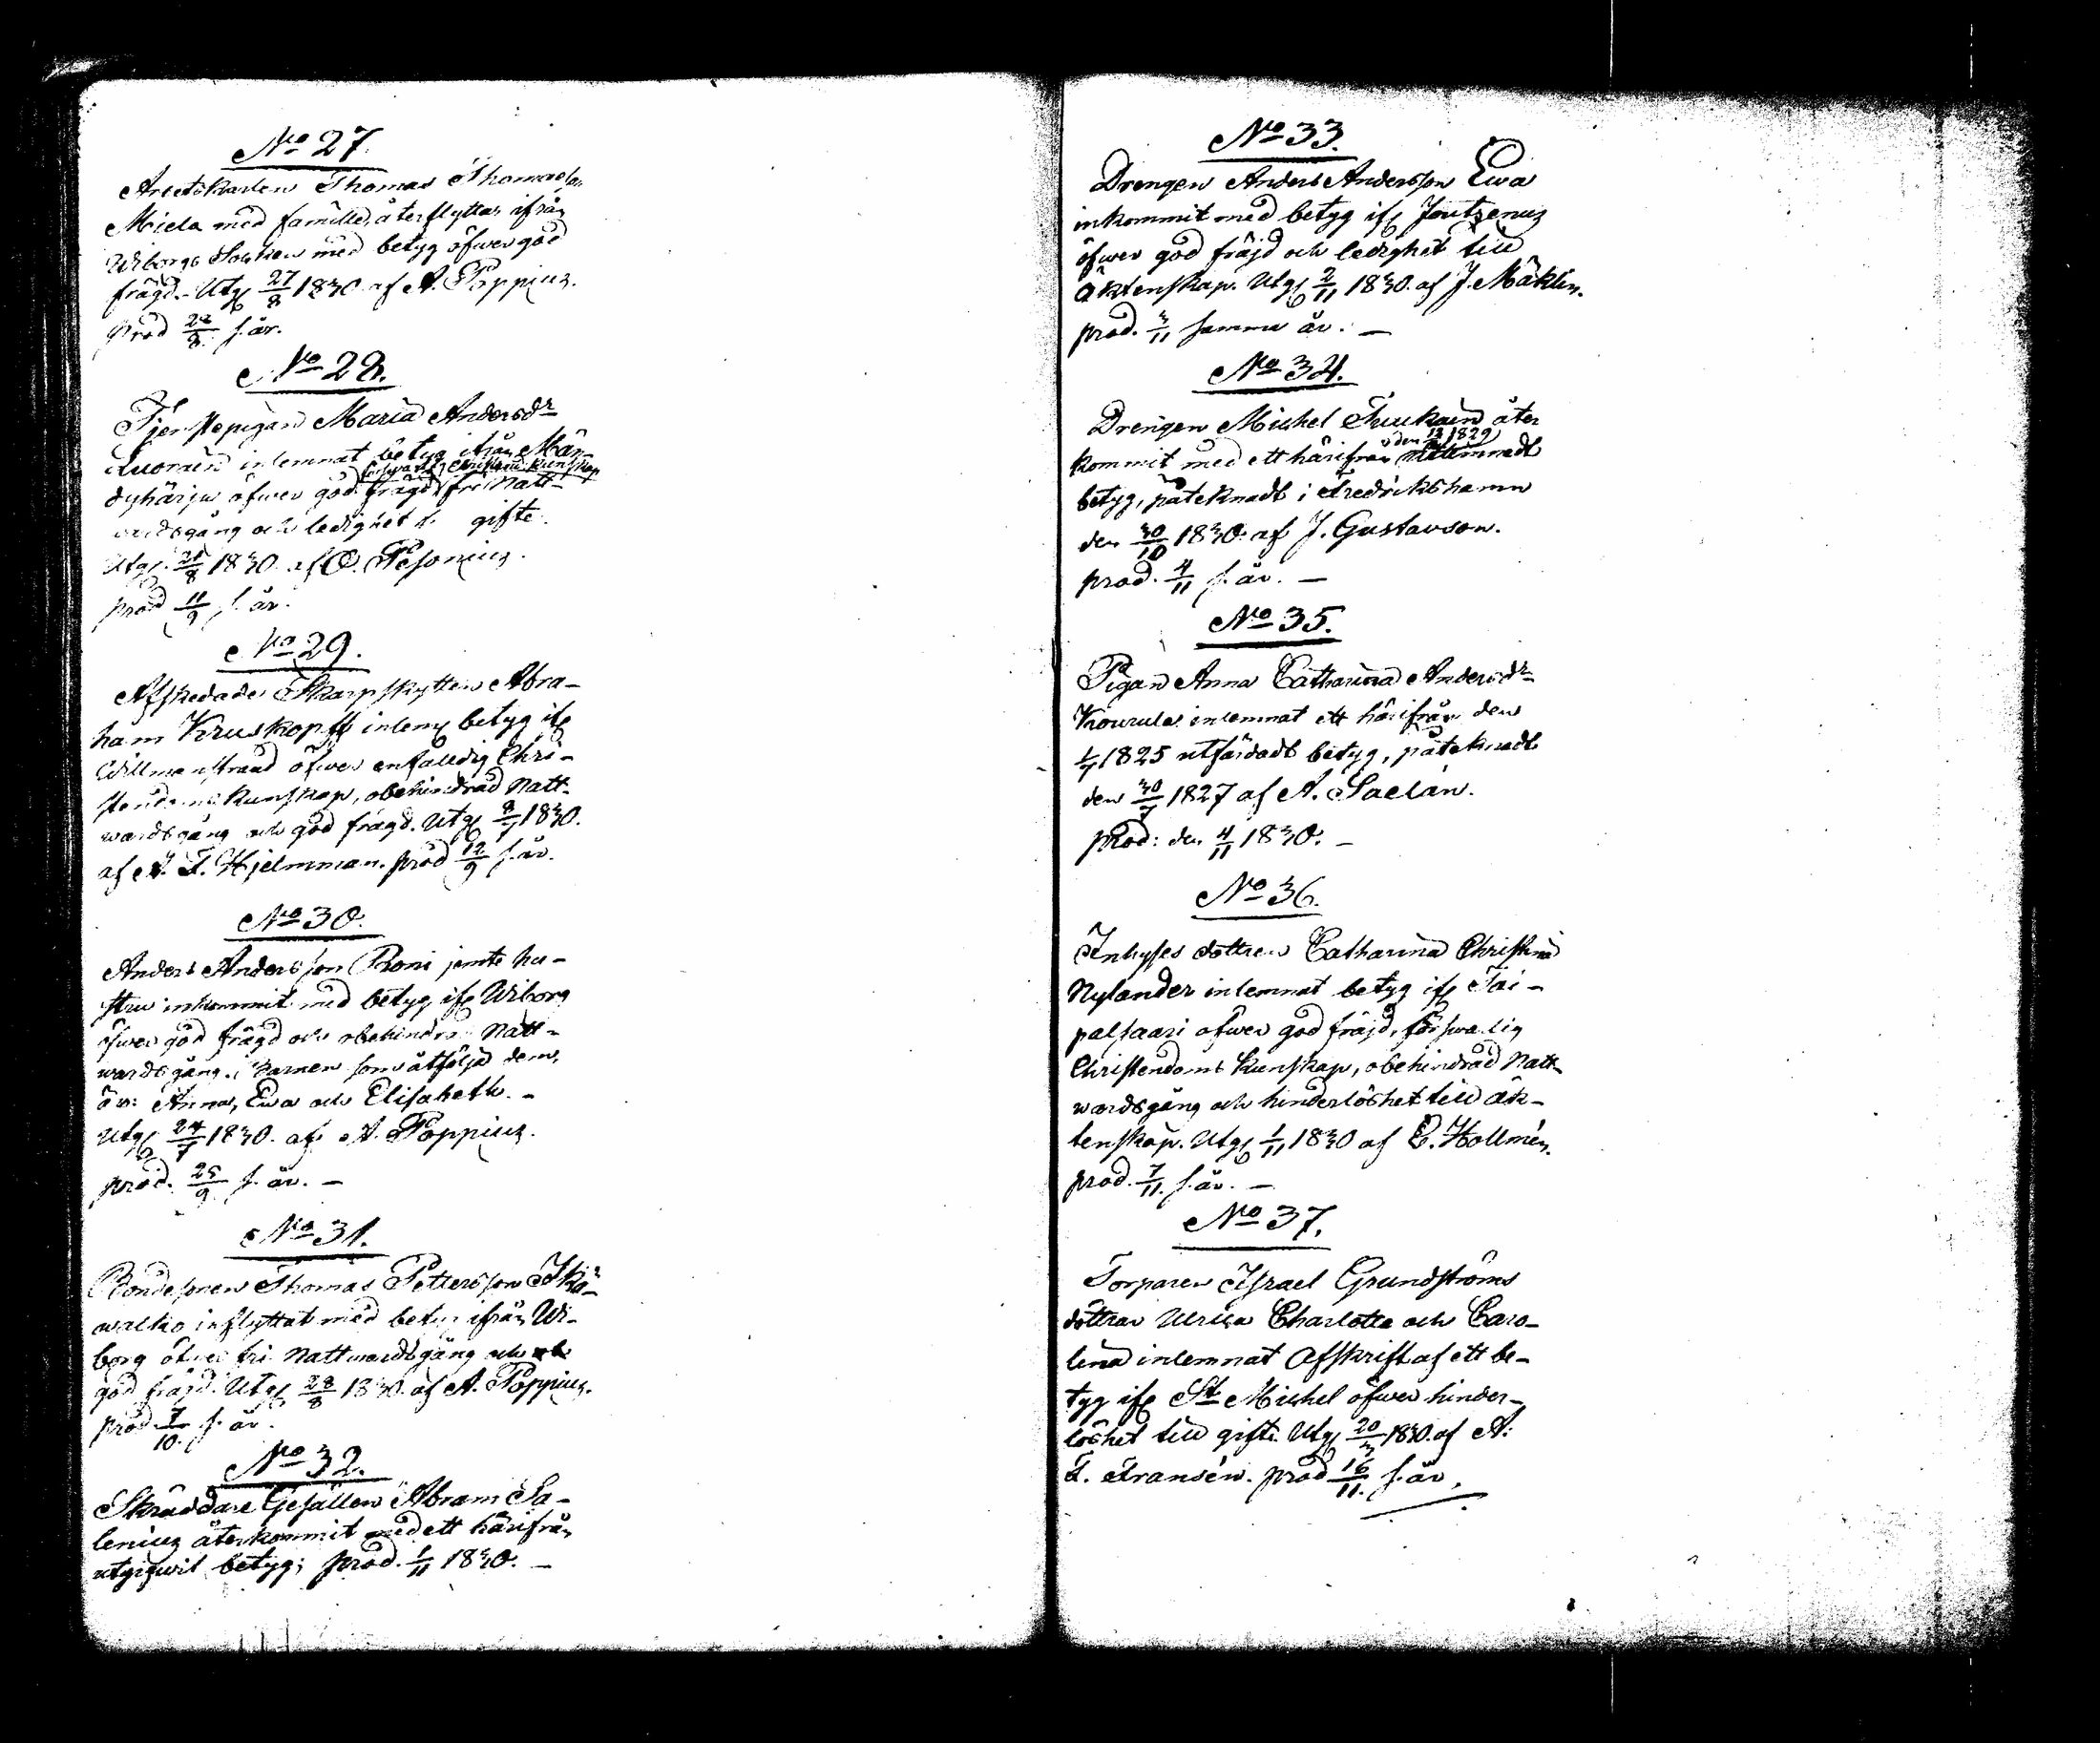 No 27.
Arbetskarlen Thomas Thomasson
Miela med famille, återflyttar ifrån
Wiborgs Sochen med betyg öfwer god
frägd. Utg. 27/8 1830 af A. Poppius.
Prod 28/8 s. år.
No 28.
Tjenstepigan Maria Andersdr
inlemnat betyg ifrån Män-
dyhärju öfwer god frägd, försvarl. Christend. kunskap fri Natt-
wardsgång och ledighet t. gifte.
Utg. 28/8 1830. af O. Pesonius.
prod 11/9 s. år.
No 29.
Afskedade Skarpskytten Abra-
ham Kruskopff inlemn betyg ifr
Willmanstrand öfwer enfalldig Chri-
stendoms kunskap, obehindrad Natt-
wardsgång och god frägd. Utg. 8/9 1830.
af A. T. Hjelmman. prod 12/9 s. år.
No 30.
Anders Andersson Roni jemte hu-
stru inkommit med betyg ifr Wiborg
öfwer god frägd och obehindrad Natt-
wardsgång. Barnen som åtfölja dem,
är: Anna, Ewa och Elisabeth. -
Utg 24/9 1830. af A. Poppius.
prod. 25/9 s. år. -
No 31.
Bondesonen Thomas Pettersson Ska-
walko inflyttat med betyg ifrån Wi-
borg öfwer fri Nattwardsgång och
god fräjd. Utg 28/8 1830. af A. Poppius.
prod. 7/10. s. år.
No 32.
Skräddare Gesällen Abram Sa-
lenius återkommit med ett härifrån
utgifwit betyg; prod. 1/11 1830. -
No 33.
Drengen Anders Andersson Ewa
inkommit med betyg ifr Joutzenus
öfwer god fräjd och ledighet till
äktenskap. Utg 2/11 1830. af J. Mäklin.
prod. 3/11 samma år. -
No 34.
Drengen Michel Tuukain åter
kommit med ett härifrån den 12/ 1829 meddelt
betyg, påteknadt i Fredrikshamn
den 30/10 1830. af J. Gustavson.
prod. 4/11 s. år. -
No 35.
Pigan Anna Catharina Andersdr
Kourula inlemnat ett härifrån den
1/7 1825 utfärdadt betyg, påteknadt
den 30/7 1827 af A. Saelan.
prod: den 4/11 1830. -
No 36.
Inhyses dottren Catharina Christina
Nylander inlemnat betyg ifr Tai-
palsaari öfwer god fräjd, förswarlig
Christendoms Kunskap, obehindrad Natt-
wardsgång och hinderlöshet till äk-
tenskap. Utg 1/11 1830 af E. Hollmén.
prod. 7/11. s. år. -
No 37.
Torparen Israel Grundströms
döttrar Ulrica Charlotta och Caro-
lina inlemnat Afskrift af ett be-
tyg ifr St Michel öfwer hinder-
löshet till gifte. Utg 20/3 1830. af A:
F. Fransén. prod 16/11. s. år.